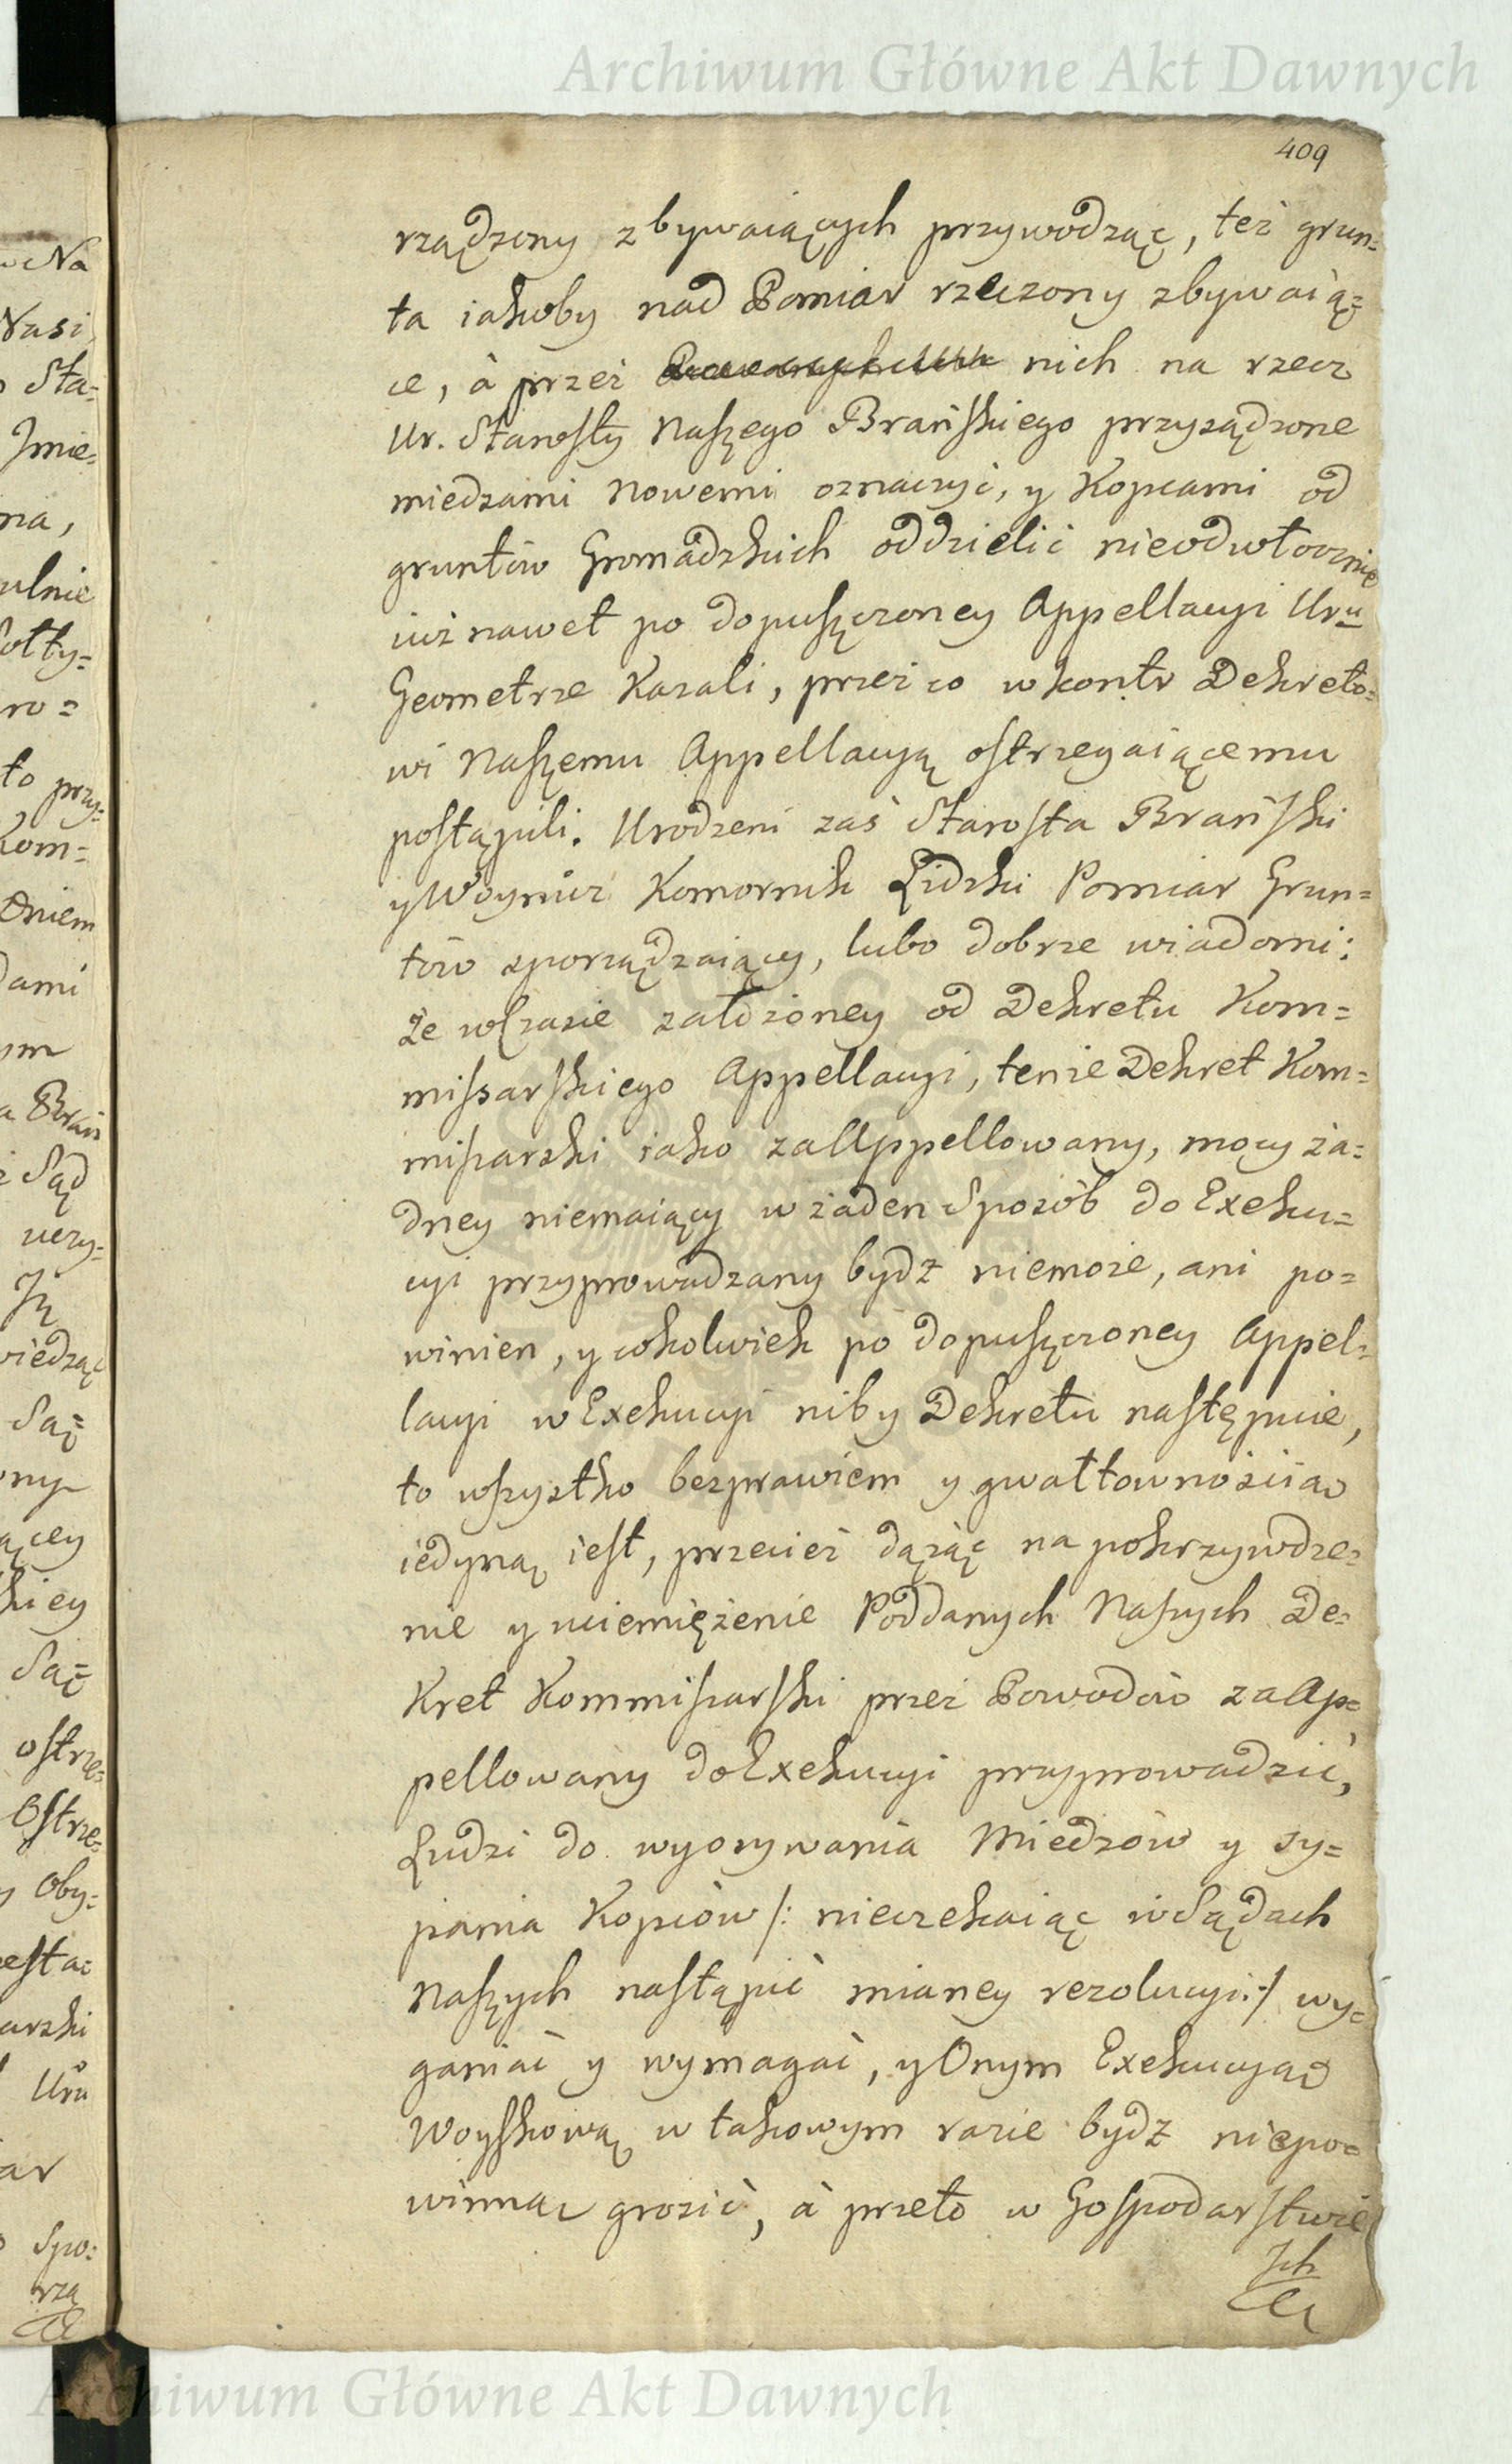 Archiwum Główne Akt Dawnych
409
rządzony zbywaiących przywodząc, też grun=
ta iakoby nad Pomiar rzeczony zbywaią=
ce, à przez nich na rzecz
Ur. Starosty Naszego Brańskiego przysądzone
miedzami Nowemi oznaczyć, y Kopcami od
gruntów Gromadzkich oddzielić nieodwłocznie
iuż nawet po dopuszczoney Appellacyi Uru
Geometrze Kazali, przez co wkontr Dekreto=
wi Naszemu Appellacyą ostrzegaiącemu
postąpili. Urodzeni zaś Starosta Brański
y Woynicz Komornik Lidzki Pomiar Grun=
tów zporządzaiący, lubo dobrze wiadomi:
że wczasie założoney od Dekretu Kom=
missarskiego Appellacyi, tenże Dekret Kom=
misarski iako zaAppellowany, mocy ża=
dney niemaiący w żaden Sposób do Exeku=
cyi przyprowadzany bydź niemoże, ani po=
winien, y cokolwiek po dopuszczoney Appel=
lacyi w Exekucyi niby Dekretu następuie,
to wszystko bezprawiem y gwałtownością
iedyną iest, przecież dążąc na pokrzywdze=
nie y uciemiężenie Poddanych Naszych De=
Kret Kommisarski przez Powodów zaAp=
pellowany do Exekucyi przyprowadzić,
Ludzi do wyorywania Miedzów y sy=
pania Kopców /: nieczekaiąc w Sądach
Naszych nastąpić mianey rezolucyi:/ wy=
ganiać y wymagać, y Onym Exekucyą
Woyskową w takowym razie bydź niepo=
winną grozić, à przeto w Gospodarstwie
Ich
wNa
Nasi
Sta=
Imie=
na,
ulnie
ołty=
ro=
to przy=
Kom=
Dniem
dami
ym
a Brań
Sąd
uczy=
wiedząc
Są=
ony
ącey
kiey
Są=
ostrze=
Ostrze=
y Oby=
esta=
arski
Uru
ar
Spo:
rzą
Archiwum Główne Akt Dawnych